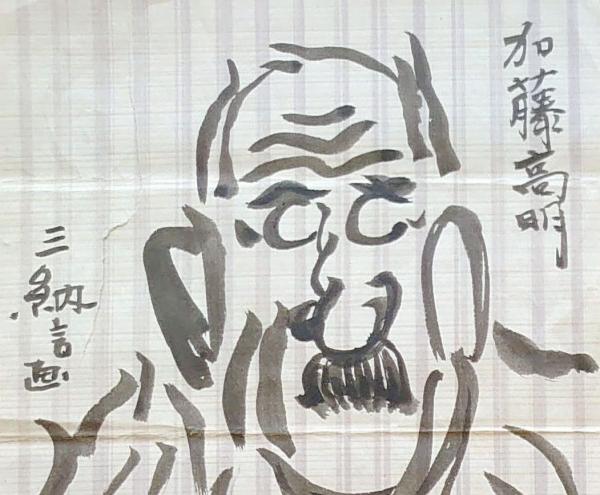 加藤高明
三納言画